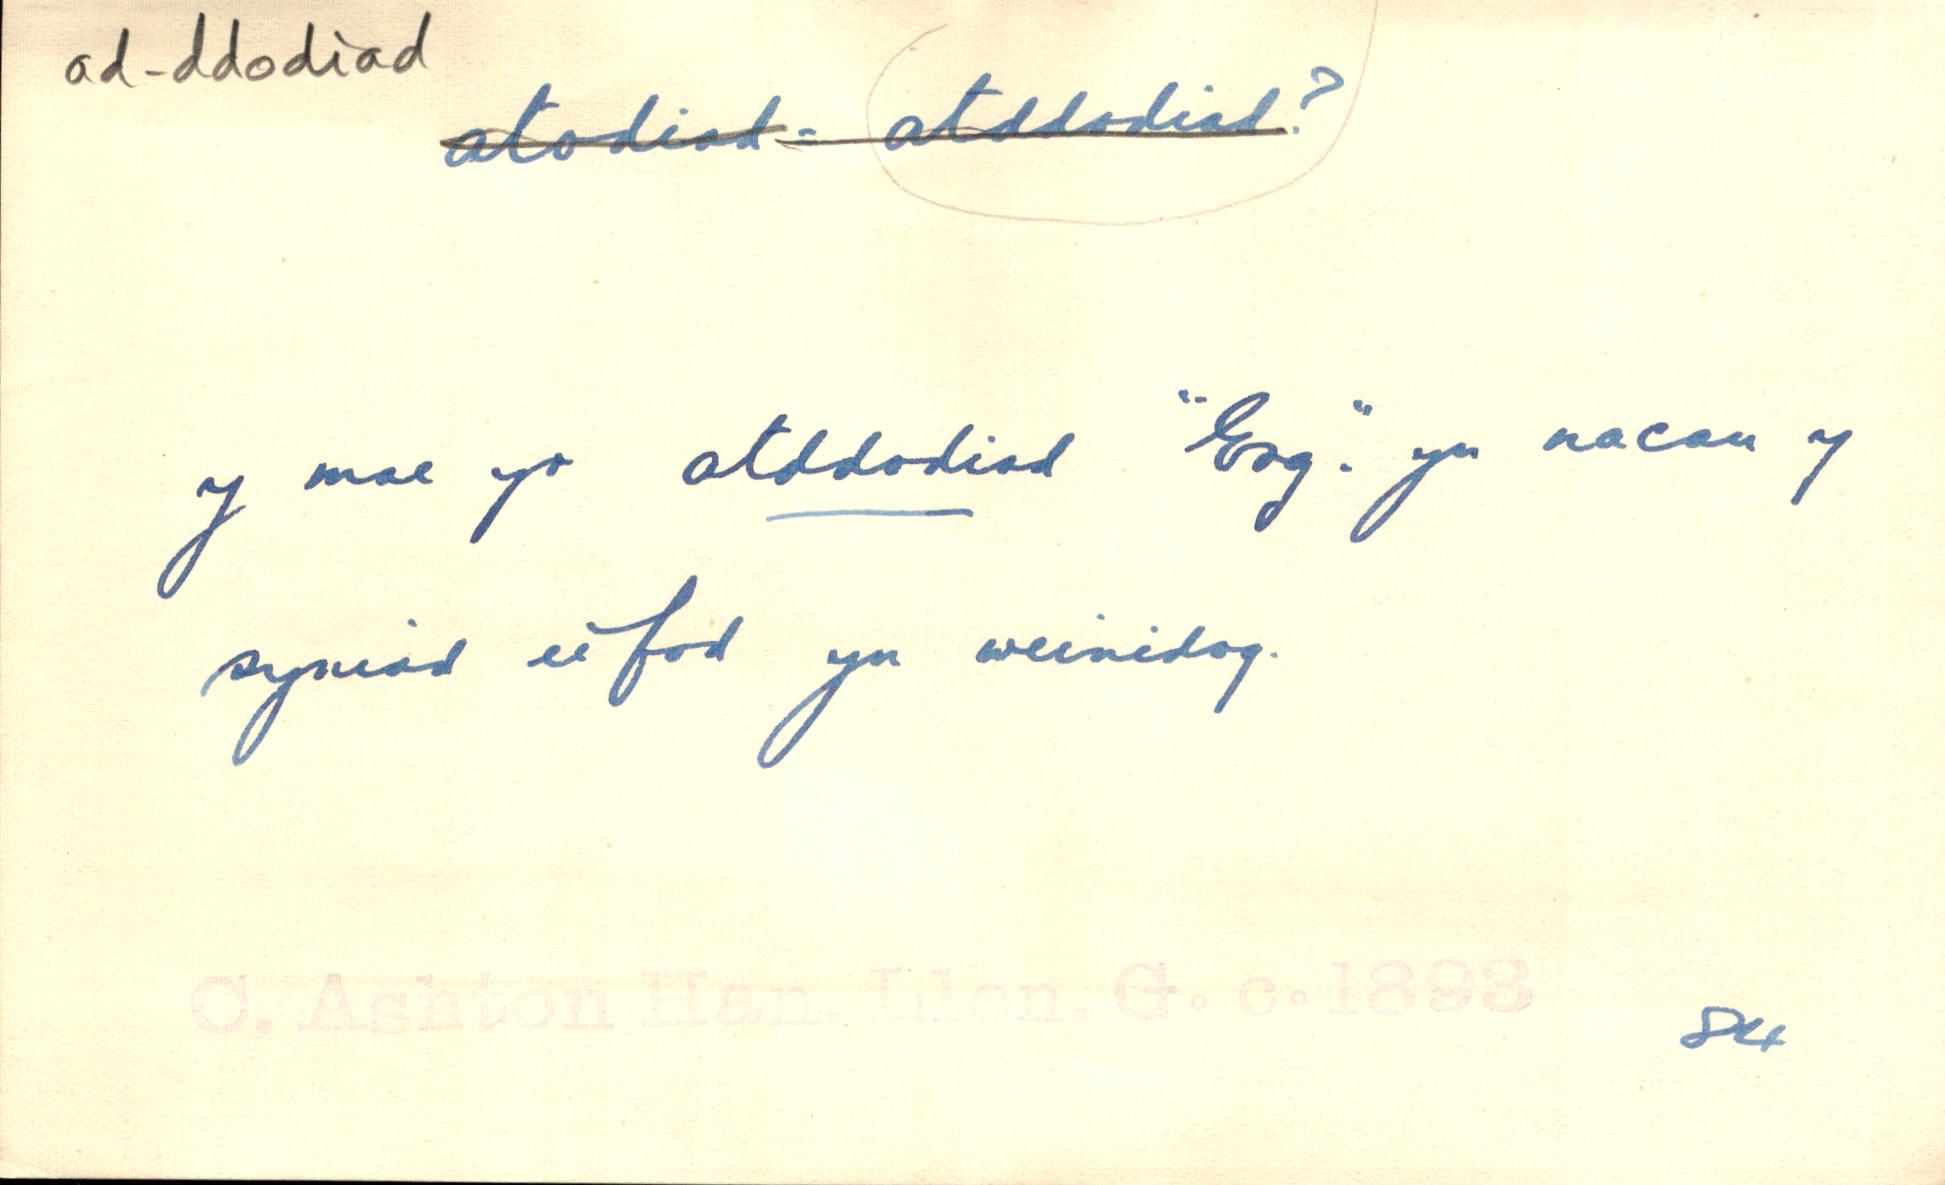 ad-ddodiad
atodiad = atddodiad?
y mae yr atddodiad "Esq." yn nacau y
syniad ei fod yn weinidog.
C. Ashton Han. Llen. G. c. 1893
84